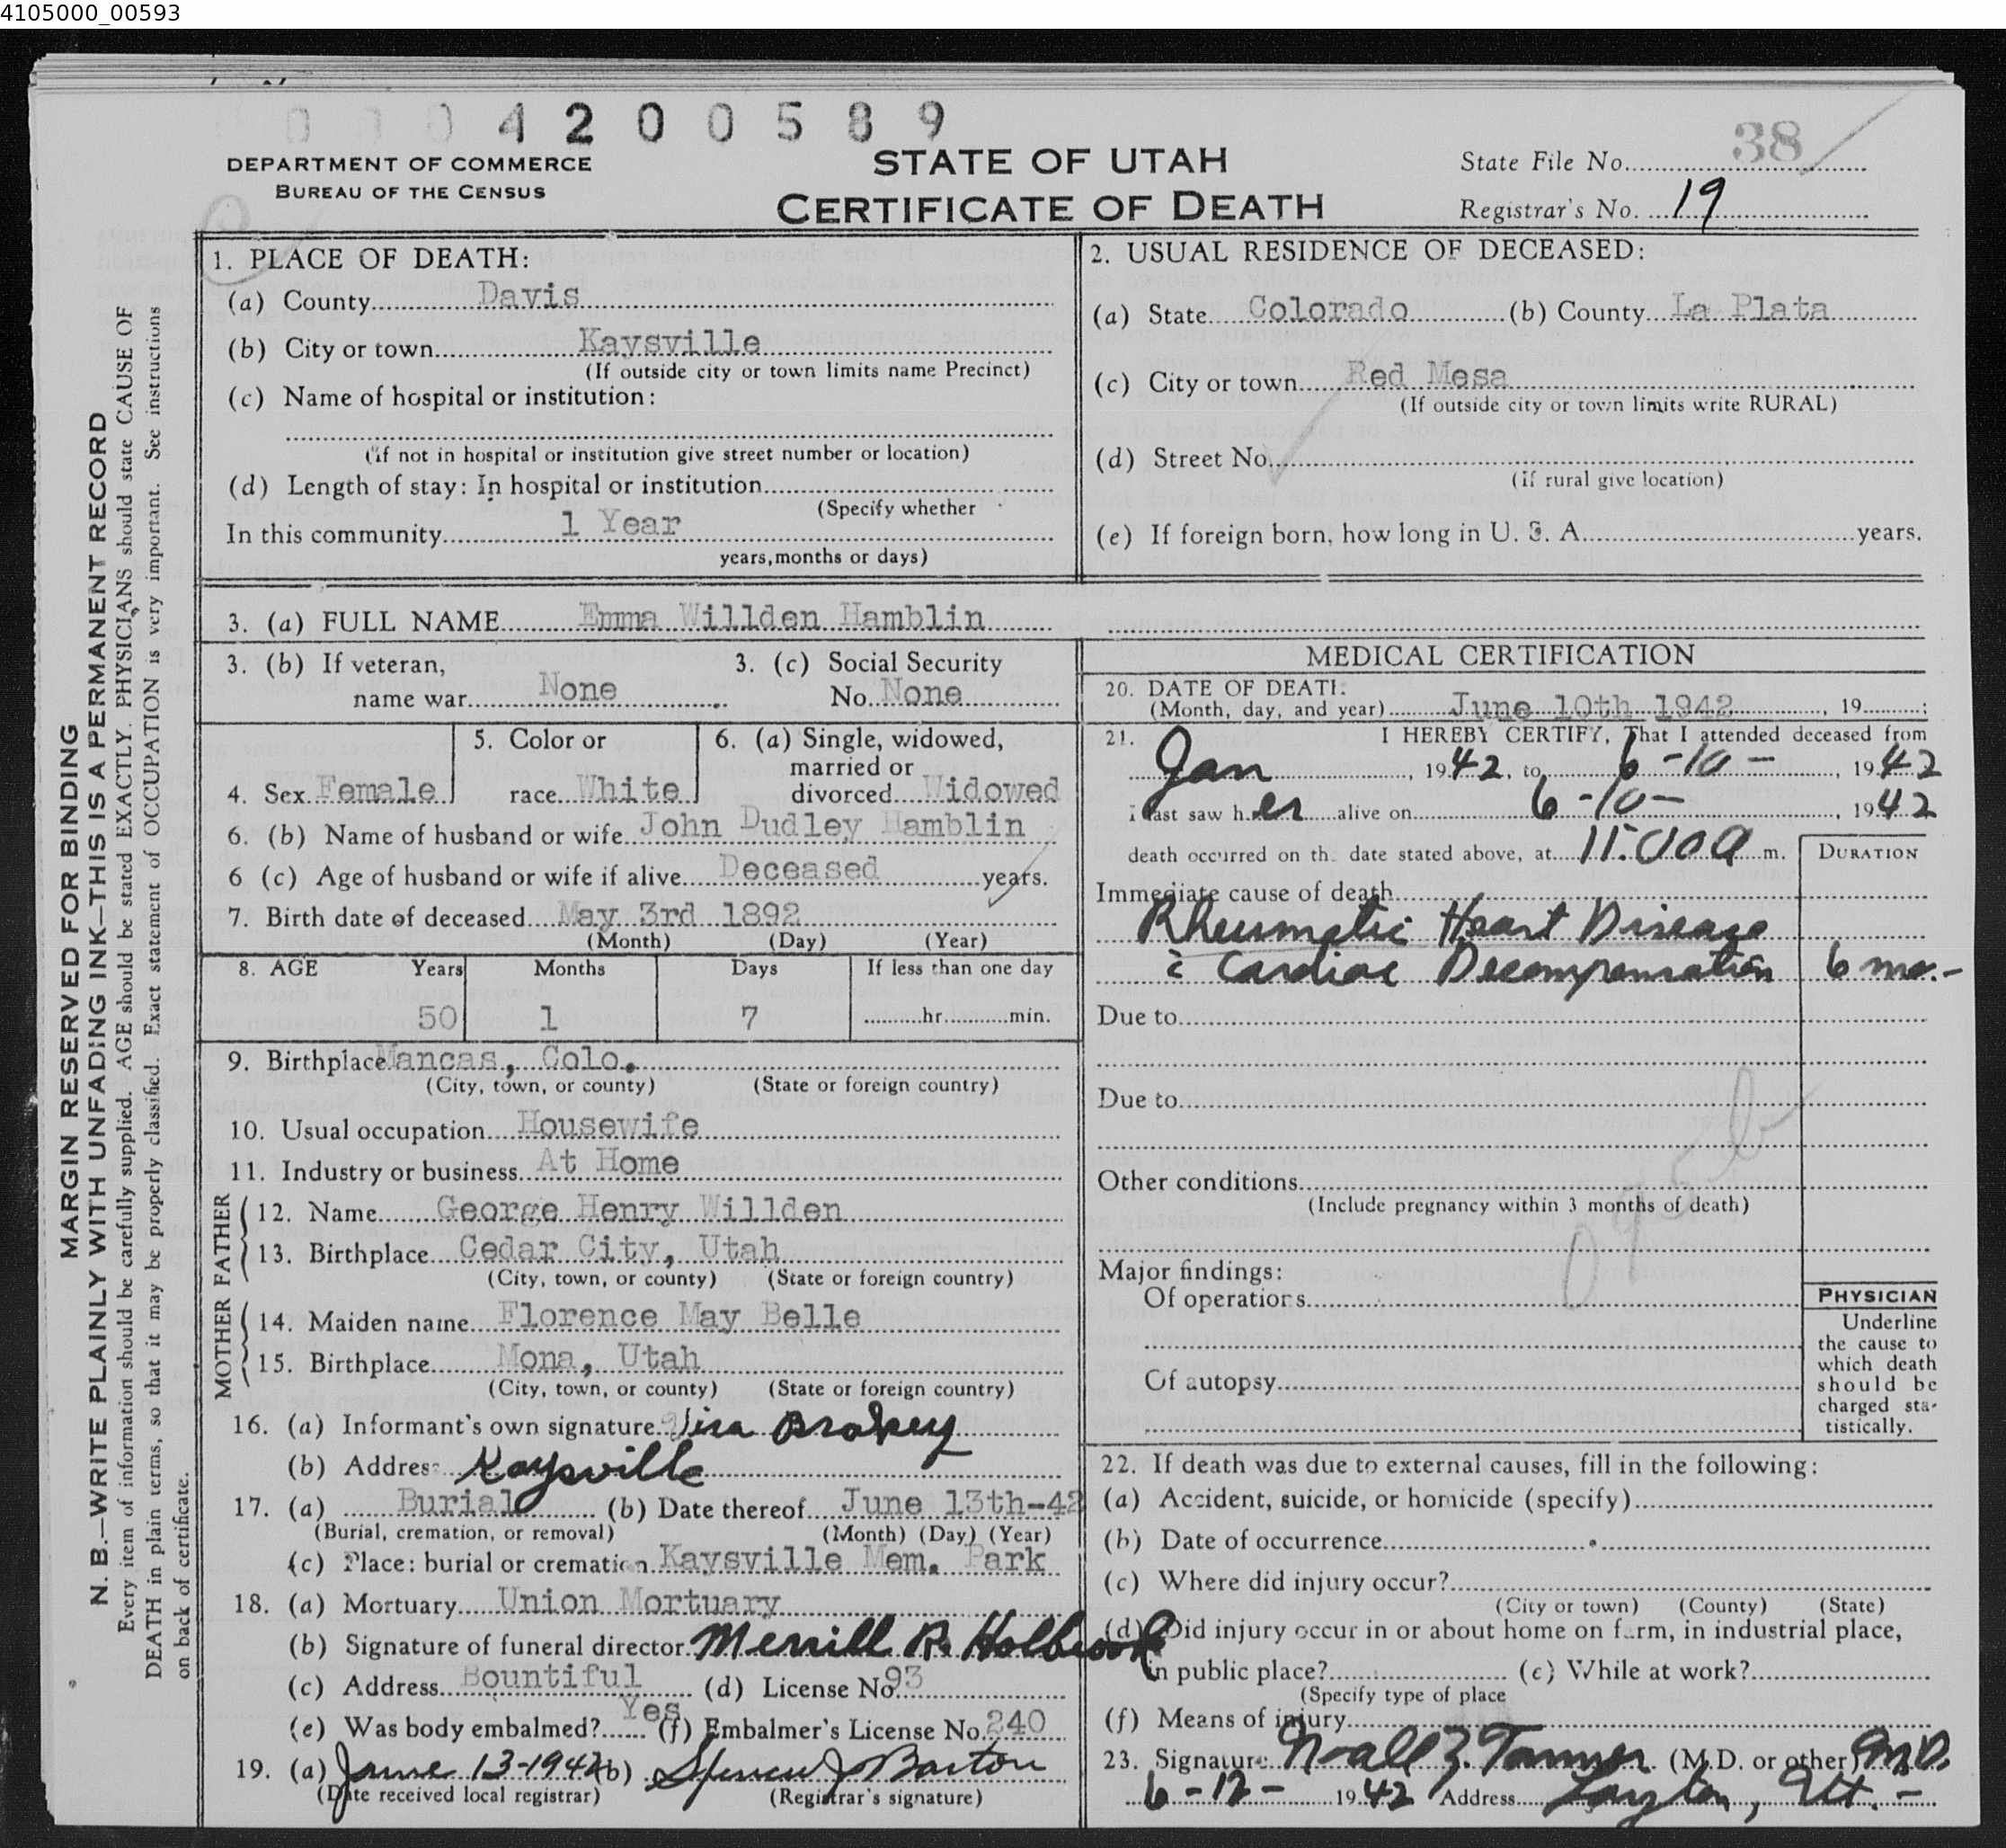 4105000_00593
4 2 0 0 5 8 9
DEPARTMENT OF COMMERCE
BUREAU OF THE CENSUS
STATE OF UTAH
CERTIFICATE OF DEATH
State File No. 38
Registrar's No. 19
MARGIN RESERVED FOR BINDING
N. B.—WRITE PLAINLY WITH UNFADING INK—THIS IS A PERMANENT RECORD
Every item of information should be carefully supplied. AGE should be stated EXACTLY. PHYSICIANS should state CAUSE OF
DEATH in plain terms, so that it may be properly classified. Exact statement of OCCUPATION is very important. See instructions
on back of certificate.
1. PLACE OF DEATH:
(a) County Davis
(b) City or town Kaysville
(If outside city or town limits name Precinct)
(c) Name of hospital or institution:
(if not in hospital or institution give street number or location)
(d) Length of stay: In hospital or institution
(Specify whether
In this community 1 Year
years, months or days)
2. USUAL RESIDENCE OF DECEASED:
(a) State Colorado (b) County La Plata
(c) City or town Red Mesa
(If outside city or town limits write RURAL)
(d) Street No.
(if rural give location)
(e) If foreign born, how long in U. S. A. years.
3. (a) FULL NAME Emma Willden Hamblin
3. (b) If veteran,
name war None
3. (c) Social Security
No. None
4. Sex Female
5. Color or
race White
6. (a) Single, widowed,
married or
divorced Widowed
6. (b) Name of husband or wife John Dudley Hamblin
6 (c) Age of husband or wife if alive Deceased years.
7. Birth date of deceased May 3rd 1892
(Month) (Day) (Year)
8. AGE Years Months Days If less than one day
50 1 7 hr. min.
9. Birthplace Mancas, Colo.
(City, town, or county) (State or foreign country)
10. Usual occupation Housewife
11. Industry or business At Home
FATHER
12. Name George Henry Willden
13. Birthplace Cedar City, Utah
(City, town, or county) (State or foreign country)
MOTHER
14. Maiden name Florence May Belle
15. Birthplace Mona, Utah
(City, town, or county) (State or foreign country)
16. (a) Informant's own signature
(b) Address Kaysville
17. (a) Burial (b) Date thereof June 13th-42
(Burial, cremation, or removal) (Month) (Day) (Year)
(c) Place: burial or cremation Kaysville Mem. Park
18. (a) Mortuary Union Mortuary
(b) Signature of funeral director Merrill R. Holbrook
(c) Address Bountiful (d) License No. 93
(e) Was body embalmed? Yes (f) Embalmer's License No. 240
19. (a) June 13-1942 (b) Spencer J Barton
(Date received local registrar) (Registrar's signature)
MEDICAL CERTIFICATION
20. DATE OF DEATH:
(Month, day, and year) June 10th 1942, 19 ;
21. I HEREBY CERTIFY, That I attended deceased from
Jan, 1942, to 6-10-, 1942
i last saw her alive on 6-10-, 1942
death occurred on the date stated above, at 11:00 a m.
DURATION
Immediate cause of death
Rheumatic Heart Disease
c̄ Cardiac Decompensation 6 mo.-
Due to
Due to
Other conditions
(Include pregnancy within 3 months of death)
Major findings:
Of operations
Of autopsy
PHYSICIAN
Underline
the cause to
which death
should be
charged sta-
tistically.
22. If death was due to external causes, fill in the following:
(a) Accident, suicide, or homicide (specify)
(b) Date of occurrence
(c) Where did injury occur?
(City or town) (County) (State)
(d) Did injury occur in or about home on farm, in industrial place,
in public place? (e) While at work?
(Specify type of place
(f) Means of injury
23. Signature Noall Z. Tanner (M.D. or other) M.D.
6-12- 1942 Address Layton, Ut.-